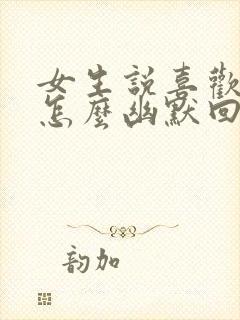 女生說喜歡
怎麼幽默回
韵加